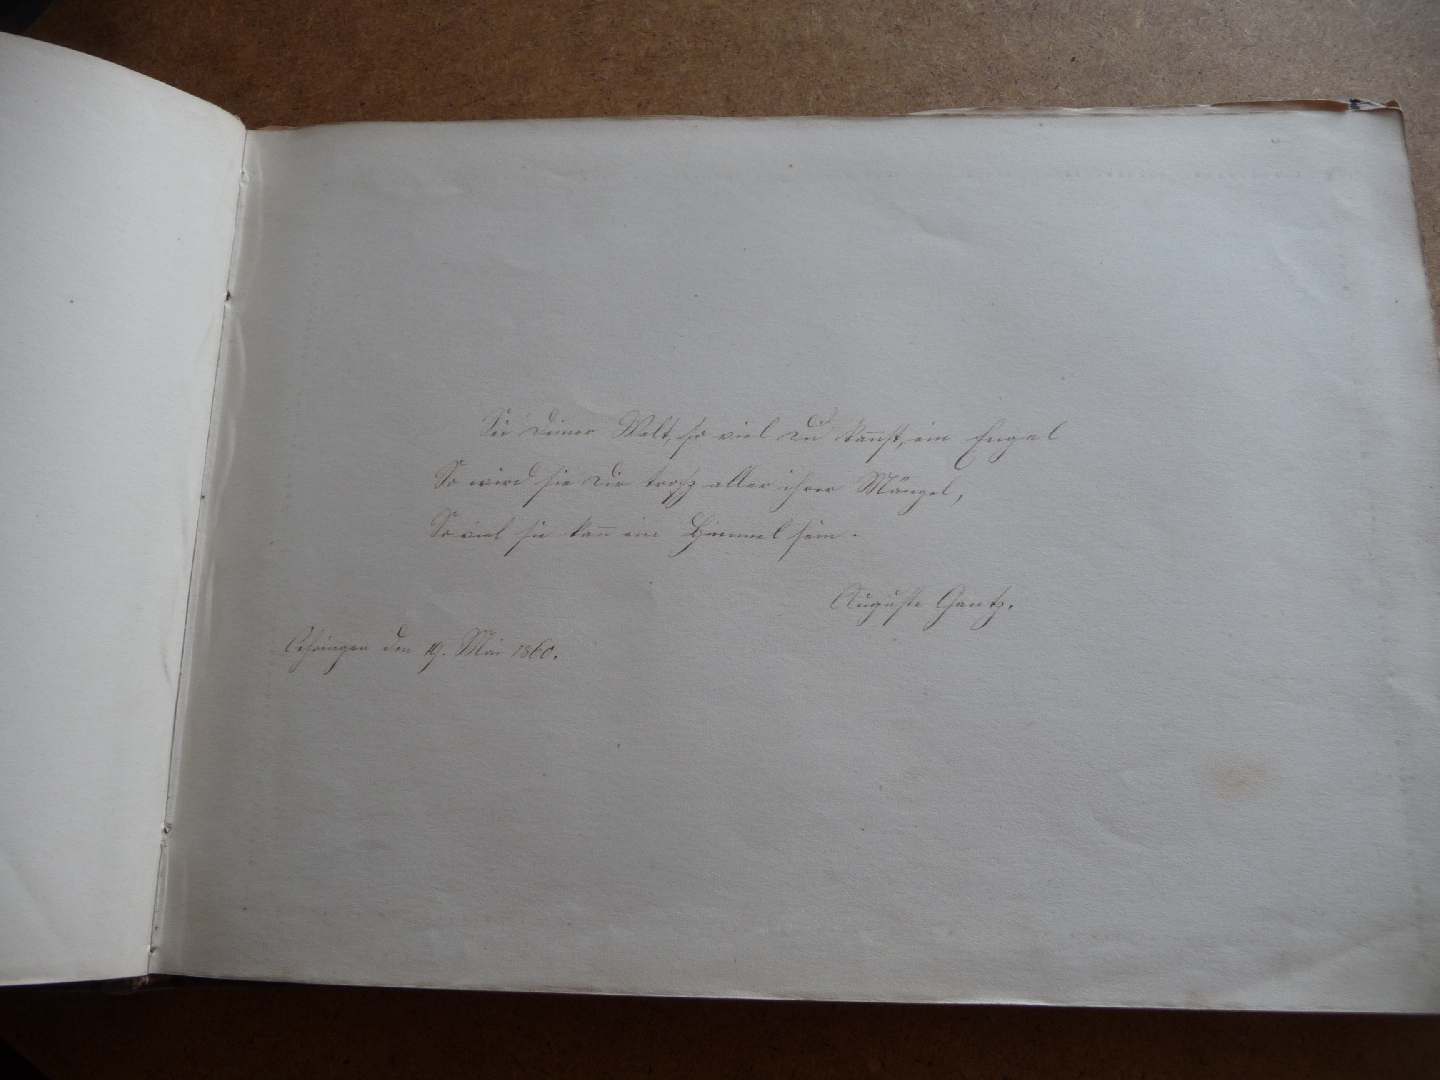 Sei Deiner Welt, so viel Du kannst, ein Engel
So wird sie Dir trotz aller ihrer Mängel,
So viel sie kann ein Himmel sein.
Auguste Gantz.
den 19. Mai 1860.